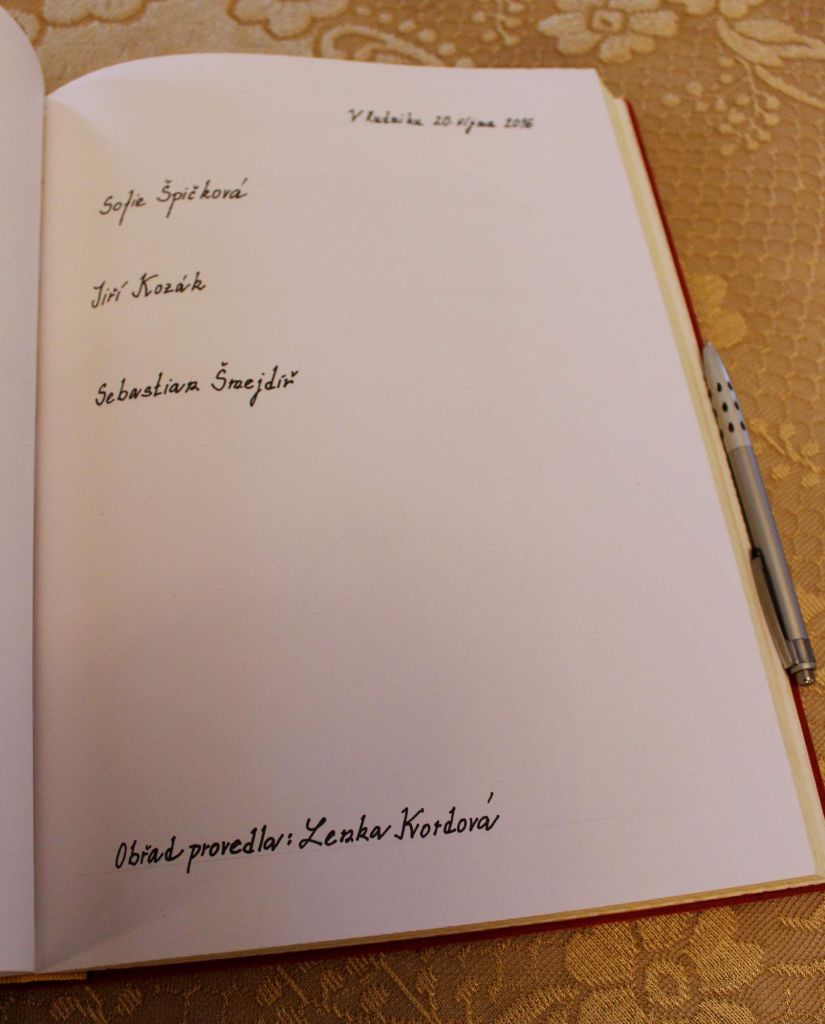 V Rudníku 20. října 2016
Sofie Špičková
Jiří Kozák
Sebastian Šmejdíř
Obřad provedla: Lenka Kordová